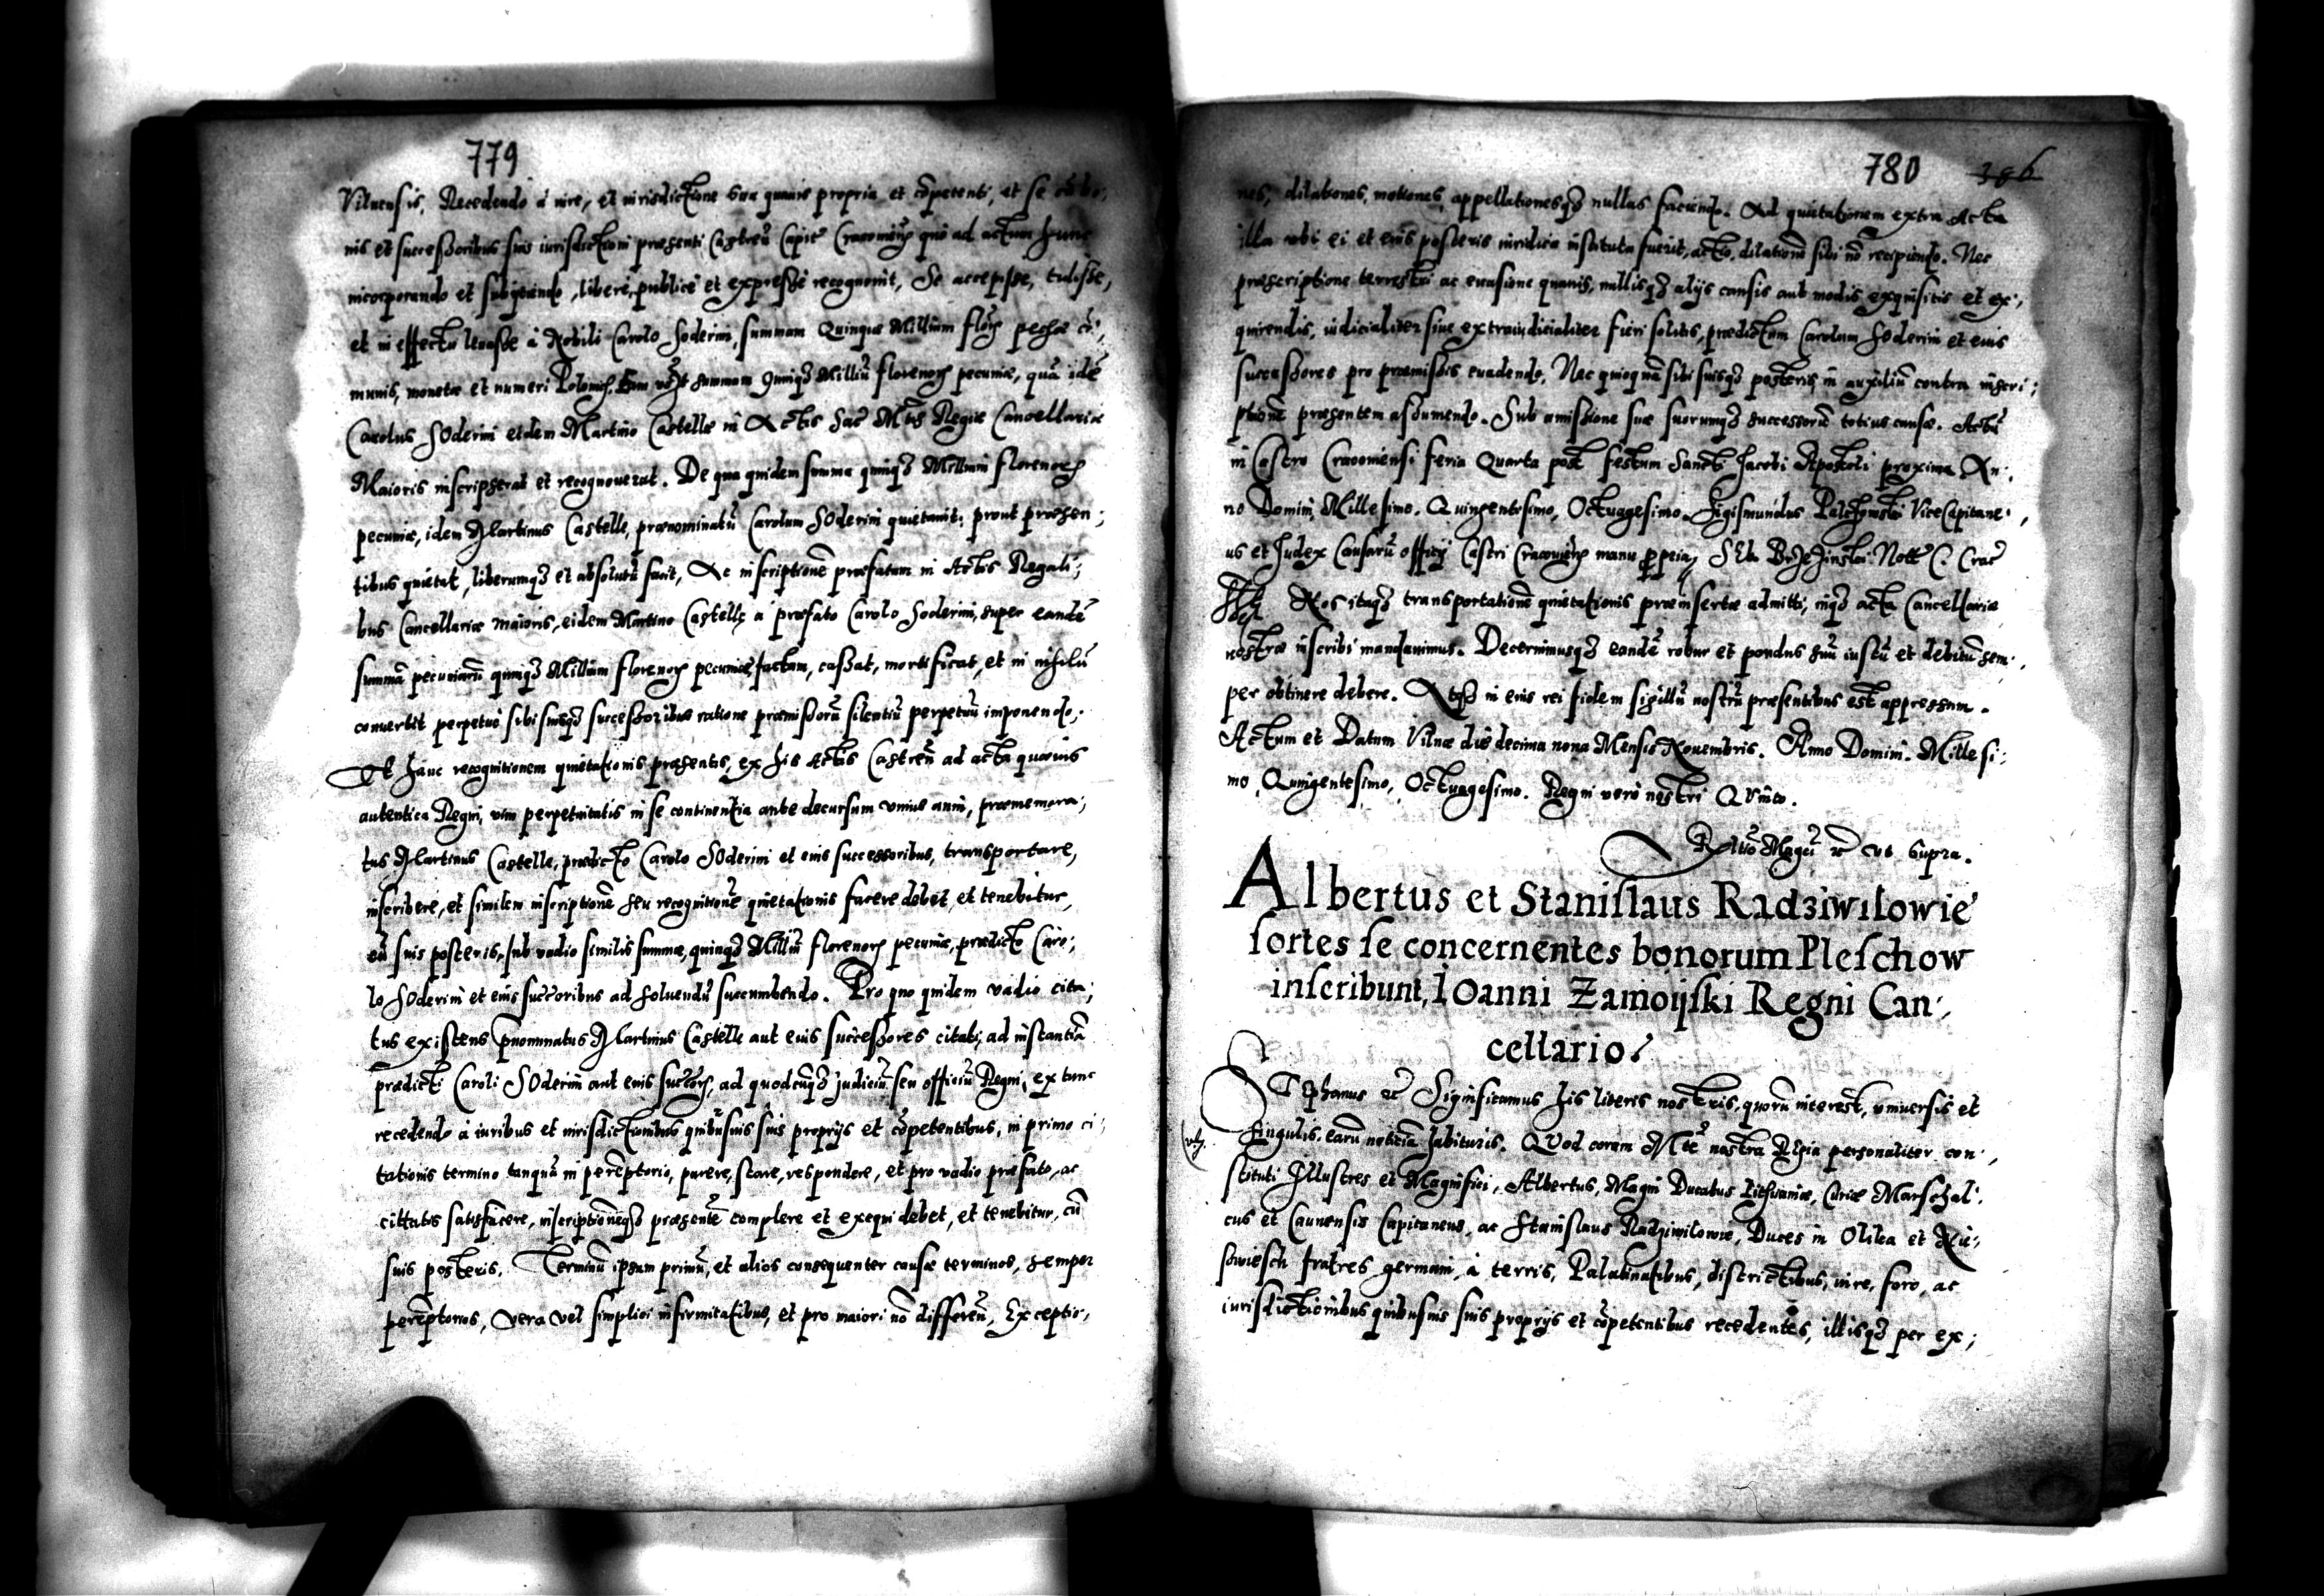 779
Vilnensis. Recedendo á iure, et iurisdictione sua quauis propria et cõpetenti, et se cũ bo,
nis et successoribus suis iurisdictioni præsenti Castreñ Capit Cracouieñ quò ad actum hunc
incorporando et subijciendo, liberè, publicè et expressè recognouit, Se accepisse, tulisse,
et in effectu leuasse à Nobili Carolo Soderini, summam Quinque Millium flor pecuñ cõ,
munis, monetæ et numeri Polonic. Eam summam quinq Milliũ florenor pecuniæ, quã idẽ
Carolus SOderini eidem Martino Castelle in Actis Sac Mtis Regiæ Cancellariæ
Maioris inscripserat et recognouerat. De qua quidem summa quinq Millium florenor
pecuniæ, idem Martinus Castelle, prænominatũ Carolum SOderini quietauit: prout præsen,
tibus quietat, liberumq et absolutũ facit, Ac inscriptionẽ præfatam in Actis Regali,
bus Cancellariæ maioris, eidem Martino Castellę a præfato Carolo Soderini, super eandẽ
summã pecuniarũ quinq Millium florenor pecuniæ factam, cassat, mortificat, et in nihilũ
conuertit perpetuò sibi suisq successoribus ratione præmissorũ silentiũ perpetuũ imponendo.
Et hanc recognitionem quietationis præsentis, ex his Actis Castreñ ad acta quæuis
autentica Regni, vim perpetuitatis in se continentia ante decursum vnius anni, præmemora,
tus Martinus Castelle, prædicto Carolo SOderini et eius successoribus, transportare,
inscribere, et similem inscriptionẽ seu recognitionẽ quietationis facere debet, et tenebitur,
cũ suis posteris, sub vadio similis summæ, quinq Milliũ florenor pecuniæ, prædicto Caro,
lo SOderini et eius succoribus ad soluendũ succumbendo. Pro quo quidem vadio cita,
tus existens pnominatus Martinus Castelle aut eius successores citati, ad instantiã
prædicti Caroli SOderini aut eius succor, ad quodcũq Judiciũ seu officiũ Regni, ex tunc
recedendo à iuribus et iurisdictionibus quibusuis suis proprijs et cõpetentibus, in primo ci,
tationis termino tanquã in perẽptorio, parere, stare, respondere, et pro vadio præfato, ac
cittatis satisfacere, inscriptionẽq præsentẽ complere et exequi debet, et tenebitur, cũ
suis posteris. Terminũ ipsum primũ, et alios consequenter causæ terminos, semper
perẽptorios, vera vel simplici infirmitatibus, et pro maiori nõ differeñ, Exceptio,
780 386
nes, dilationes, motiones, appellationesq nullas faciendo. Ad quietationem extra Acta
illa vbi ei et eius posteris iuridica instituta fuerit, acto, dilationẽ sibi nõ recipiendo. Nec
præscriptione terrestri ac euasione quauis, nullisq alijs causis aut modis exquisitis et ex,
quirendis, iudicialiter siue extraiudicialiter fieri solitis, prædictum Carolum SOderini et eius
successores pro præmissis euadendo, Nec quicquã sibi suisq posteris in auxiliũ contra inscri,
ptionẽ præsentem assumendo. Sub amissione suæ suorumq successorũ totius causæ. Actũ
in Castro Cracouiensi feria Quarta post festum Sancti Jacobi Apostoli proxima An,
no Domini, Millesimo. Quingentesimo, Octuagesimo. Sigismundus Palchowski ViceCapitane,
us et Judex Causarũ officij Castri Cracouieñ manu ppria, Not C. Crac
Nos itaq transportationẽ quietationis præinsertæ admitti, inq acta Cancellariæ
nostræ inscribi mandauimus. Decernimusq eandẽ robur et pondus suũ iustũ et debitũ sem,
per obtinere debere. Atq in eius rei fidem sigillũ nostrũ præsentibus est appressum.
Actum et Datum Vilnæ die decima nona Mensis Nouembris. Anno Domini. Millesi,
mo, Quingentesimo, Octuagesimo. Regni verò nostri QVinto.
Reltio Magci &c vt supra.
Albertus et Stanislaus Radziwilowie
sortes se concernentes bonorum Pleschow
inscribunt, IOanni Zamoijski Regni Can,
cellario.
STephanus &c Significamus his literis nostris, quorũ interest, vniuersis et
singulis, earũ noticiã habituris. QVod coram Mte nostra Regia personaliter con,
stituti Illustres et Magnifici, Albertus, Magni Ducatus Lithuaniæ, Curiæ Marschal,
cus et Caunensis Capitaneus, ac Stanislaus Radziwilowie, Duces in Olika et Nie,
swiesch fratres germani, à terris, Palatinatibus, districtibus, iure, foro, ac
iurisdictionibus quibusuis suis proprijs et cõpetentibus recedentes, illisq per ex,